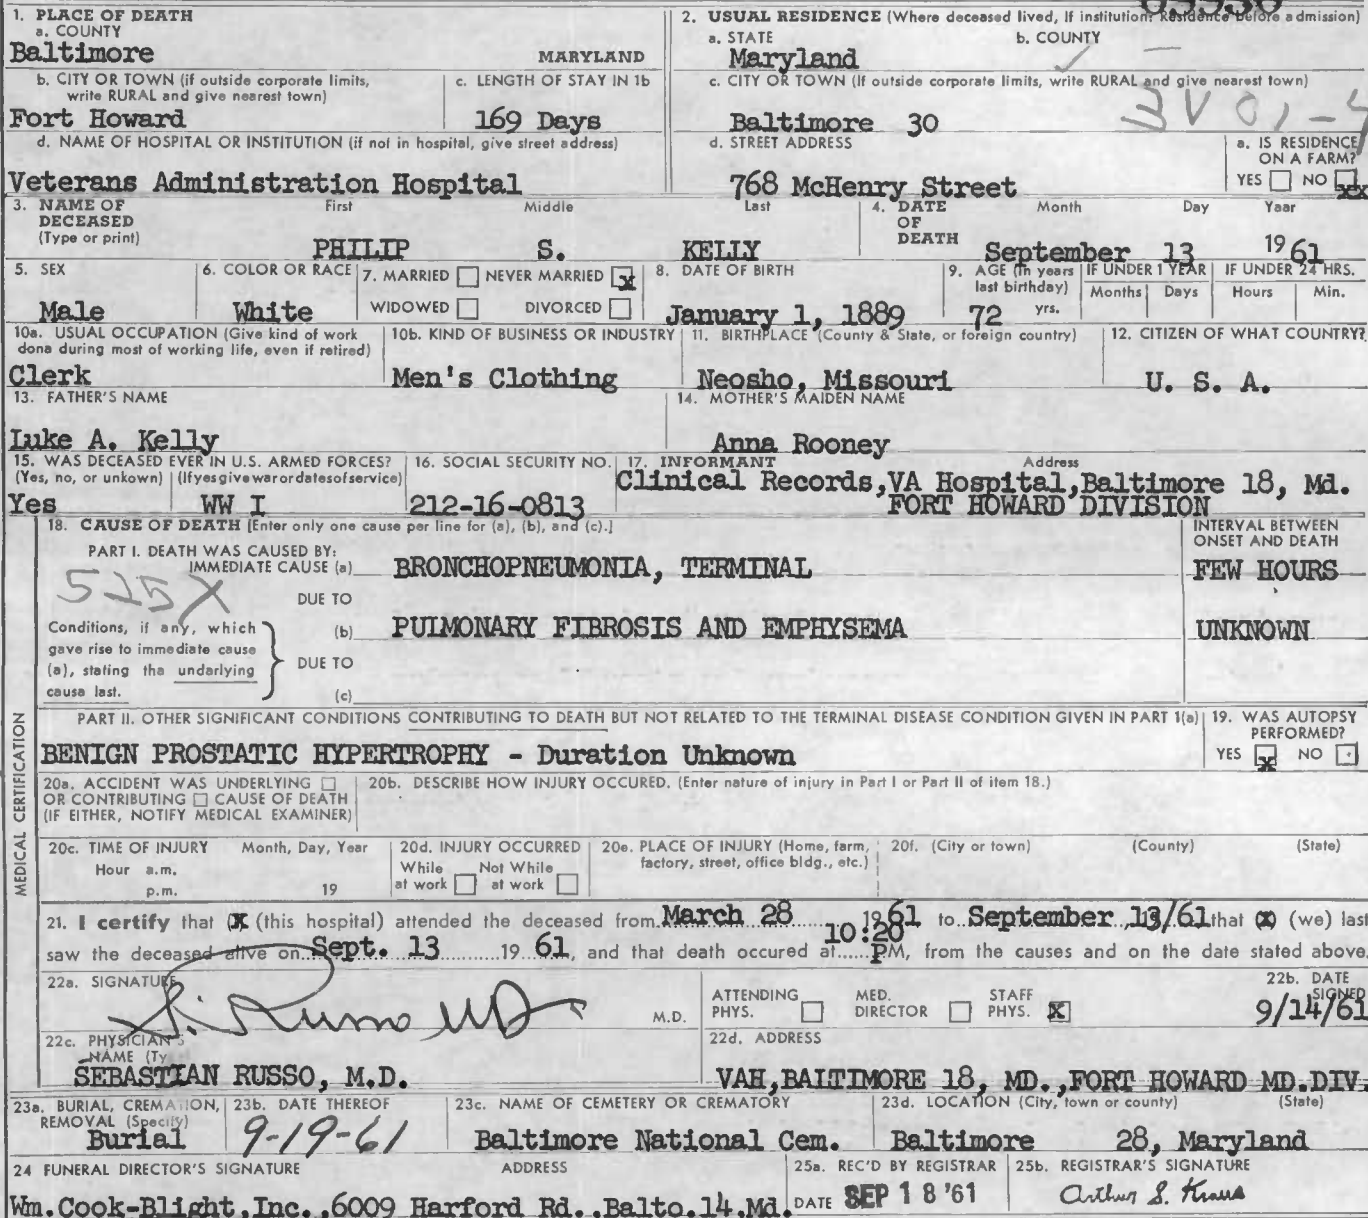 1. PLACE OF DEATH
a. COUNTY
Baltimore MARYLAND
2. USUAL RESIDENCE (Where deceased lived, If institution: Residence before admission)
a. STATE b. COUNTY
Maryland
b. CITY OR TOWN (if outside corporate limits, write RURAL and give nearest town)
Fort Howard
c. LENGTH OF STAY IN 1b
169 Days
c. CITY OR TOWN (If outside corporate limits, write RURAL and give nearest town)
Baltimore 30
3V01-4
d. NAME OF HOSPITAL OR INSTITUTION (if not in hospital, give street address)
Veterans Administration Hospital
d. STREET ADDRESS
768 McHenry Street
a. IS RESIDENCE ON A FARM?
YES NO xx
3. NAME OF DECEASED (Type or print)
First Middle Last
PHILIP S. KELLY
4. DATE OF DEATH
Month Day Year
September 13 1961
5. SEX
Male
6. COLOR OR RACE
White
7. MARRIED NEVER MARRIED x
WIDOWED DIVORCED
8. DATE OF BIRTH
January 1, 1889
9. AGE (In years last birthday)
72 yrs.
IF UNDER 1 YEAR
Months Days
IF UNDER 24 HRS.
Hours Min.
10a. USUAL OCCUPATION (Give kind of work dona during most of working life, even if retired)
Clerk
10b. KIND OF BUSINESS OR INDUSTRY
Men's Clothing
11. BIRTHPLACE (County & State, or foreign country)
Neosho, Missouri
12. CITIZEN OF WHAT COUNTRY?
U. S. A.
13. FATHER'S NAME
Luke A. Kelly
14. MOTHER'S MAIDEN NAME
Anna Rooney
15. WAS DECEASED EVER IN U.S. ARMED FORCES?
(Yes, no, or unkown) (Ifyesgivewarordatesofservice)
Yes WW I
16. SOCIAL SECURITY NO.
212-16-0813
17. INFORMANT Address
Clinical Records,VA Hospital,Baltimore 18, Md.
FORT HOWARD DIVISION
18. CAUSE OF DEATH [Enter only one cause per line for (a), (b), and (c).]
INTERVAL BETWEEN ONSET AND DEATH
PART I. DEATH WAS CAUSED BY:
IMMEDIATE CAUSE (a) BRONCHOPNEUMONIA, TERMINAL FEW HOURS
525X
DUE TO
Conditions, if any, which gave rise to immediate cause (a), stating tha undarlying causa last.
(b) PULMONARY FIBROSIS AND EMPHYSEMA UNKNOWN
DUE TO
(c)
PART II. OTHER SIGNIFICANT CONDITIONS CONTRIBUTING TO DEATH BUT NOT RELATED TO THE TERMINAL DISEASE CONDITION GIVEN IN PART 1(a)
BENIGN PROSTATIC HYPERTROPHY - Duration Unknown
19. WAS AUTOPSY PERFORMED?
YES x NO
MEDICAL CERTIFICATION
20a. ACCIDENT WAS UNDERLYING
OR CONTRIBUTING CAUSE OF DEATH
(IF EITHER, NOTIFY MEDICAL EXAMINER)
20b. DESCRIBE HOW INJURY OCCURED. (Enter nature of injury in Part I or Part II of item 18.)
20c. TIME OF INJURY Month, Day, Year
Hour a.m.
p.m. 19
20d. INJURY OCCURRED
While at work Not While at work
20e. PLACE OF INJURY (Home, farm, factory, street, office bldg., etc.)
20f. (City or town) (County) (State)
21. I certify that (X (this hospital) attended the deceased from March 28 1961 to September 13/61 that (x) (we) last
saw the deceased alive on Sept. 13 19 61, and that death occured at 10:20 PM, from the causes and on the date stated above.
22a. SIGNATURE
S. Russo MD M.D.
ATTENDING PHYS. MED. DIRECTOR STAFF PHYS. X
22b. DATE SIGNED
9/14/61
22c. PHYSICIAN'S NAME (Ty
SEBASTIAN RUSSO, M.D.
22d. ADDRESS
VAH,BALTIMORE 18, MD.,FORT HOWARD MD.DIV.
23a. BURIAL, CREMATION, REMOVAL (Specify)
Burial
23b. DATE THEREOF
9-19-61
23c. NAME OF CEMETERY OR CREMATORY
Baltimore National Cem.
23d. LOCATION (City, town or county) (State)
Baltimore 28, Maryland
24 FUNERAL DIRECTOR'S SIGNATURE ADDRESS
Wm.Cook-Blight,Inc.,6009 Harford Rd.,Balto.14,Md.
25a. REC'D BY REGISTRAR
DATE SEP 18 '61
25b. REGISTRAR'S SIGNATURE
Arthur S. Kraus